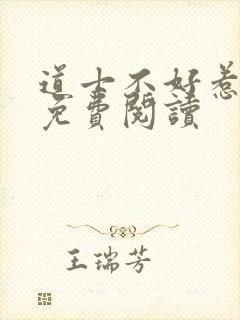 道士不好惹
免費閱讀
王瑞芳